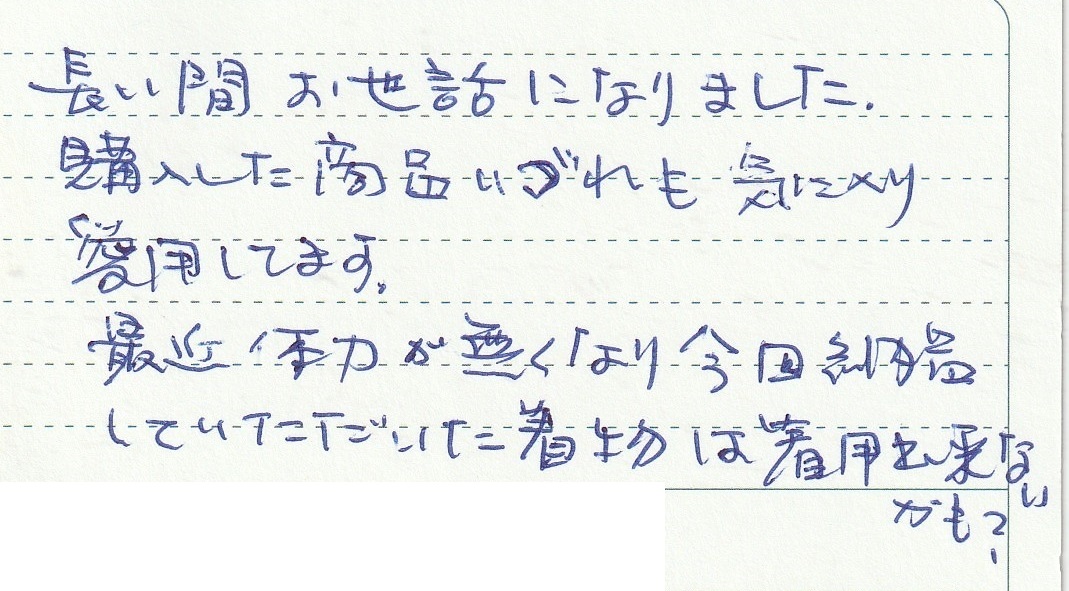 長い間 お世話になりました.
購入した商品いづれも 気に入り
愛用してます。
最近 体力が無くなり 今回納品
していただいた着物は着用出来ない
かも?